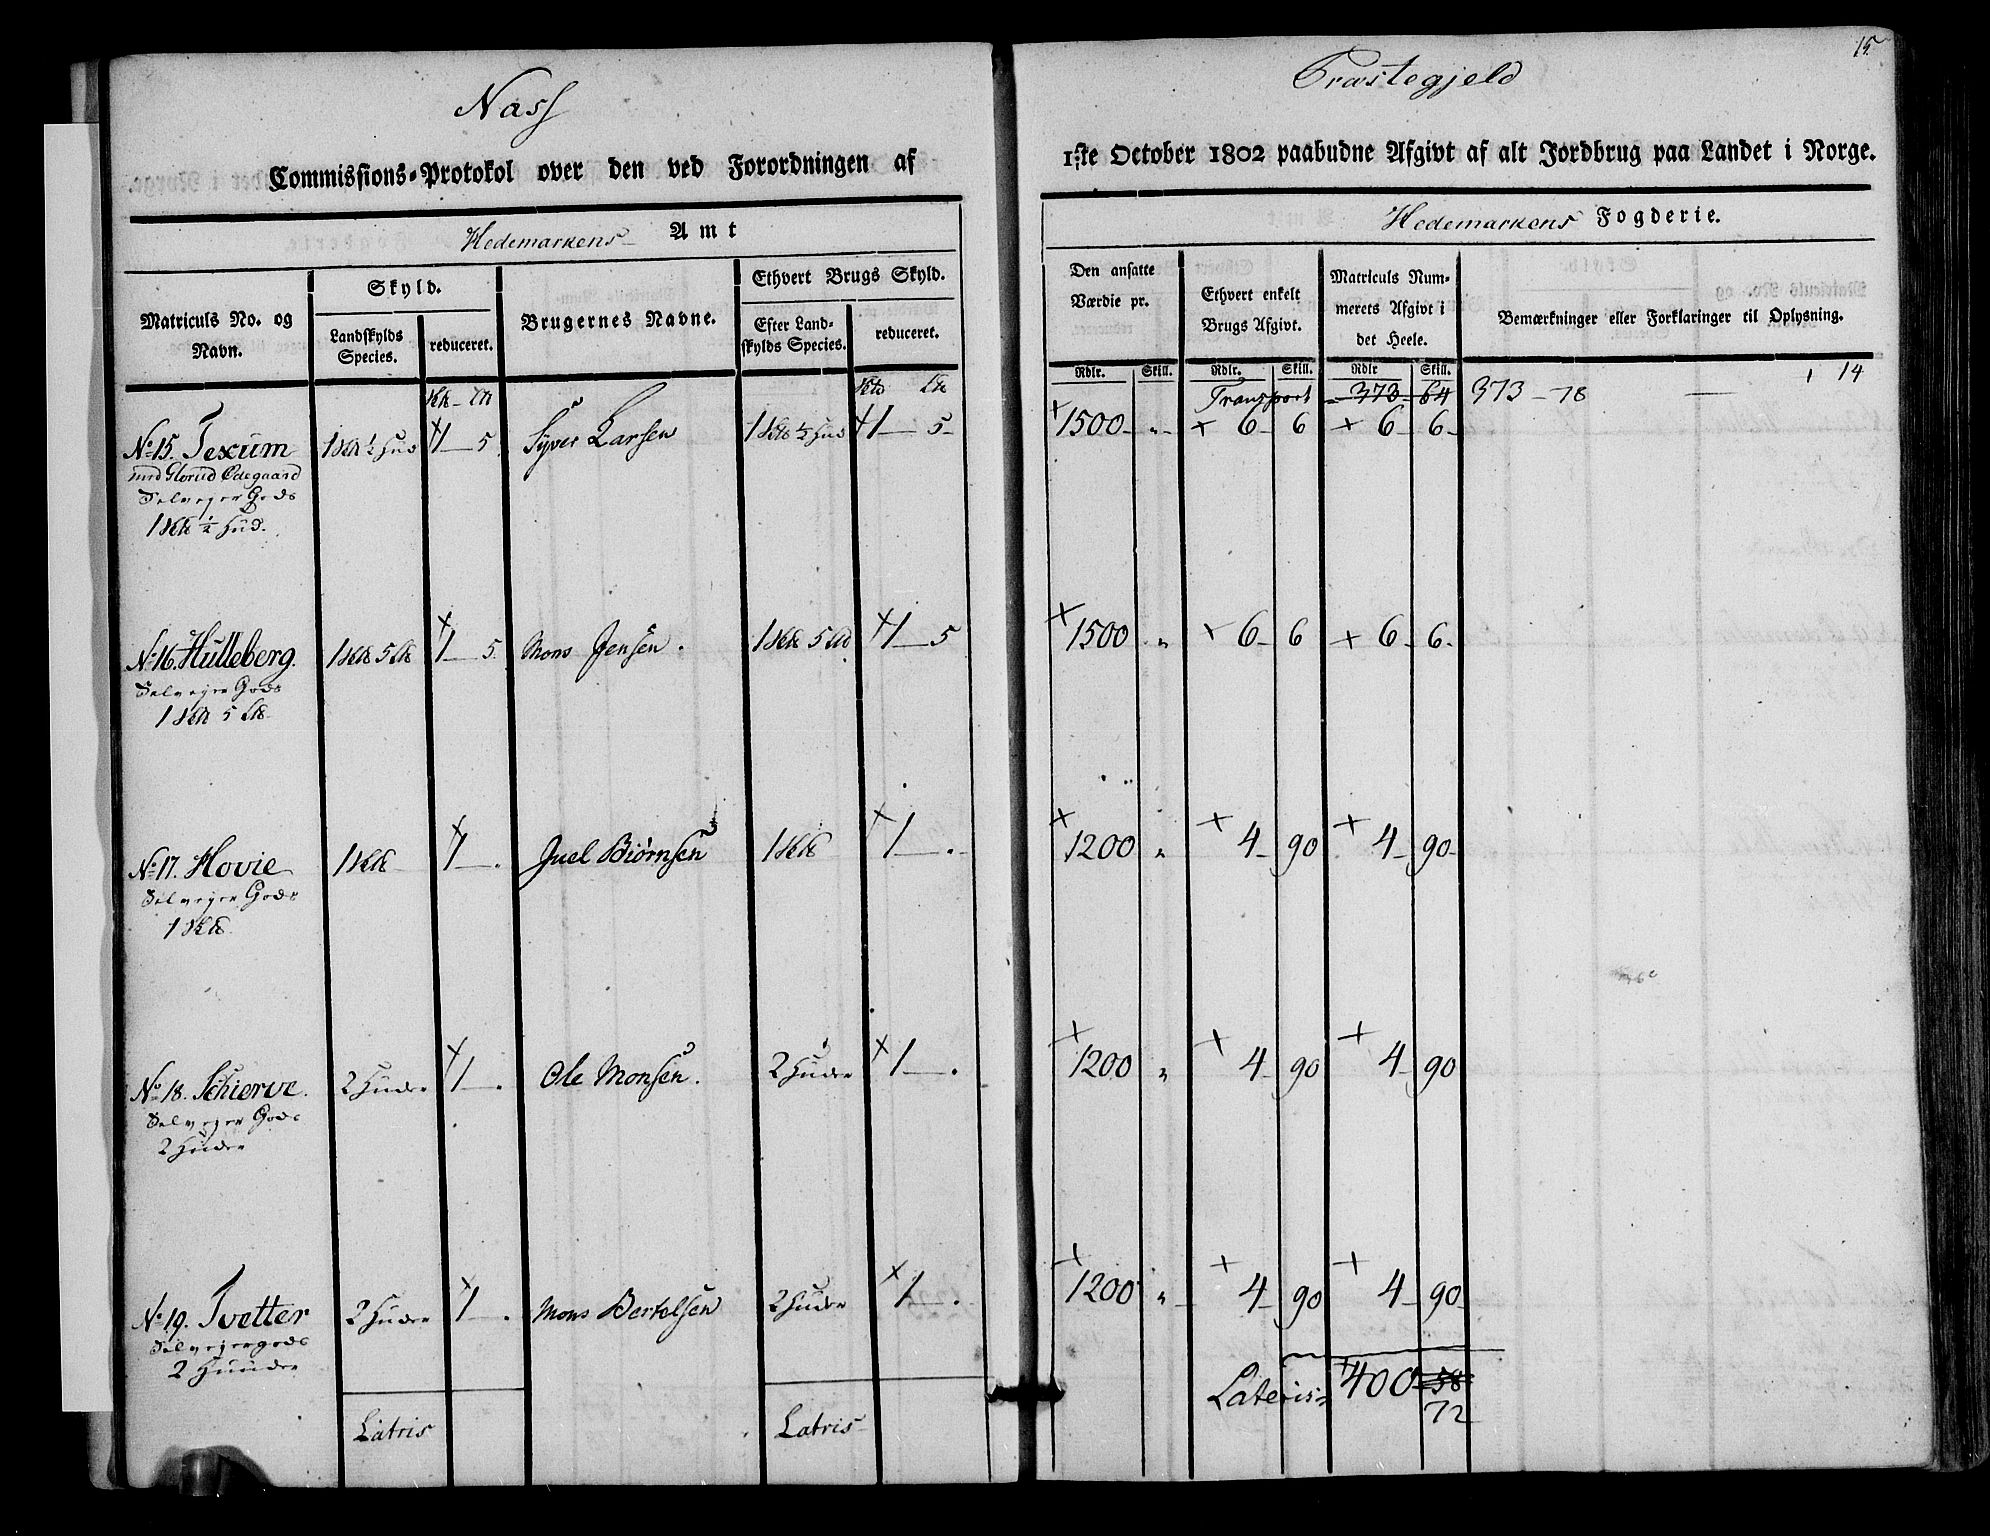 Nass
Commissions-Protokol over den ved Forordningen af
Hedemarkens Amt
Matriculs No. og Navn.
Skyld.
Landskylds Species.
reduceret.
Brugernes Navne.
Ethvert Brugs Skyld.
Efter Landskylds Species.
reduceret.
No 15. Texum 1 ½ Hud 1 5 Syver Larsen 1 ½ Hud 1 5
med Glorud Ødegaard
Selveyer Gods
1 ½ Hud.
No 16. Hulleberg. 1 5 1 5 Mons Jensen. 1 5 1 5
Selveyer Gods
1 5
No 17. Hovie 1 1 Juel Biørnsen 1 1
Selveyer Gods
1
No 18. Schierve. 2 Huder 1 Ole Monsen. 2 Huder 1
Selveyer Gods
2 Huder
No 19. Tvetter 2 Huder 1 Mons Bertelsen 2 Huder 1
Selveyergods
2 Huuder
Latris Latris
15
Præstegjeld
1:ste October 1802 paabudne Afgivt af alt Jordbrug paa Landet i Norge.
Hedemarkens Fogderie.
Den ansatte Værdie pr.
Ethvert enkelt Brugs Afgivt.
Matriculs Nummerets Afgivt i det Heele.
Bemærkninger eller Forklaringer til Oplysning.
Rdlr. Skill. Rdlr. Skill. Rdlr Skill.
14
Transport 373 64 373 - 78
1500 " 6 6 6 6
1500 " 6 6 6 6
1200 " 4 90 4 90
1200 " 4 90 4 90
1200 " 4 90 4 90
Lateris 400 58
72